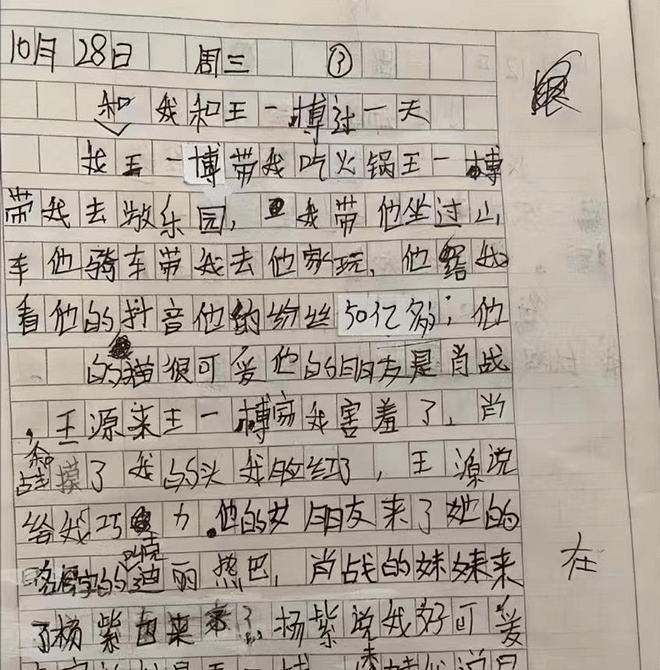 10月28日 周三 ③
和我和王一博过一天
我王一博带我吃火锅王一博
带我去敨乐园，我带他坐过山
车他骑车带我去他家玩，他给我
看他的抖音他的纷丝50亿多；他
的猫很可爱他的朋友是肖战
，王源来王一博家我害羞了，肖
战摸了我的头我脸红了，王源说
给我巧 力.他的女朋友来了她的
名字的迪丽热巴，肖战的妹妹来
了杨紫也来 了.杨紫说我好可爱
在